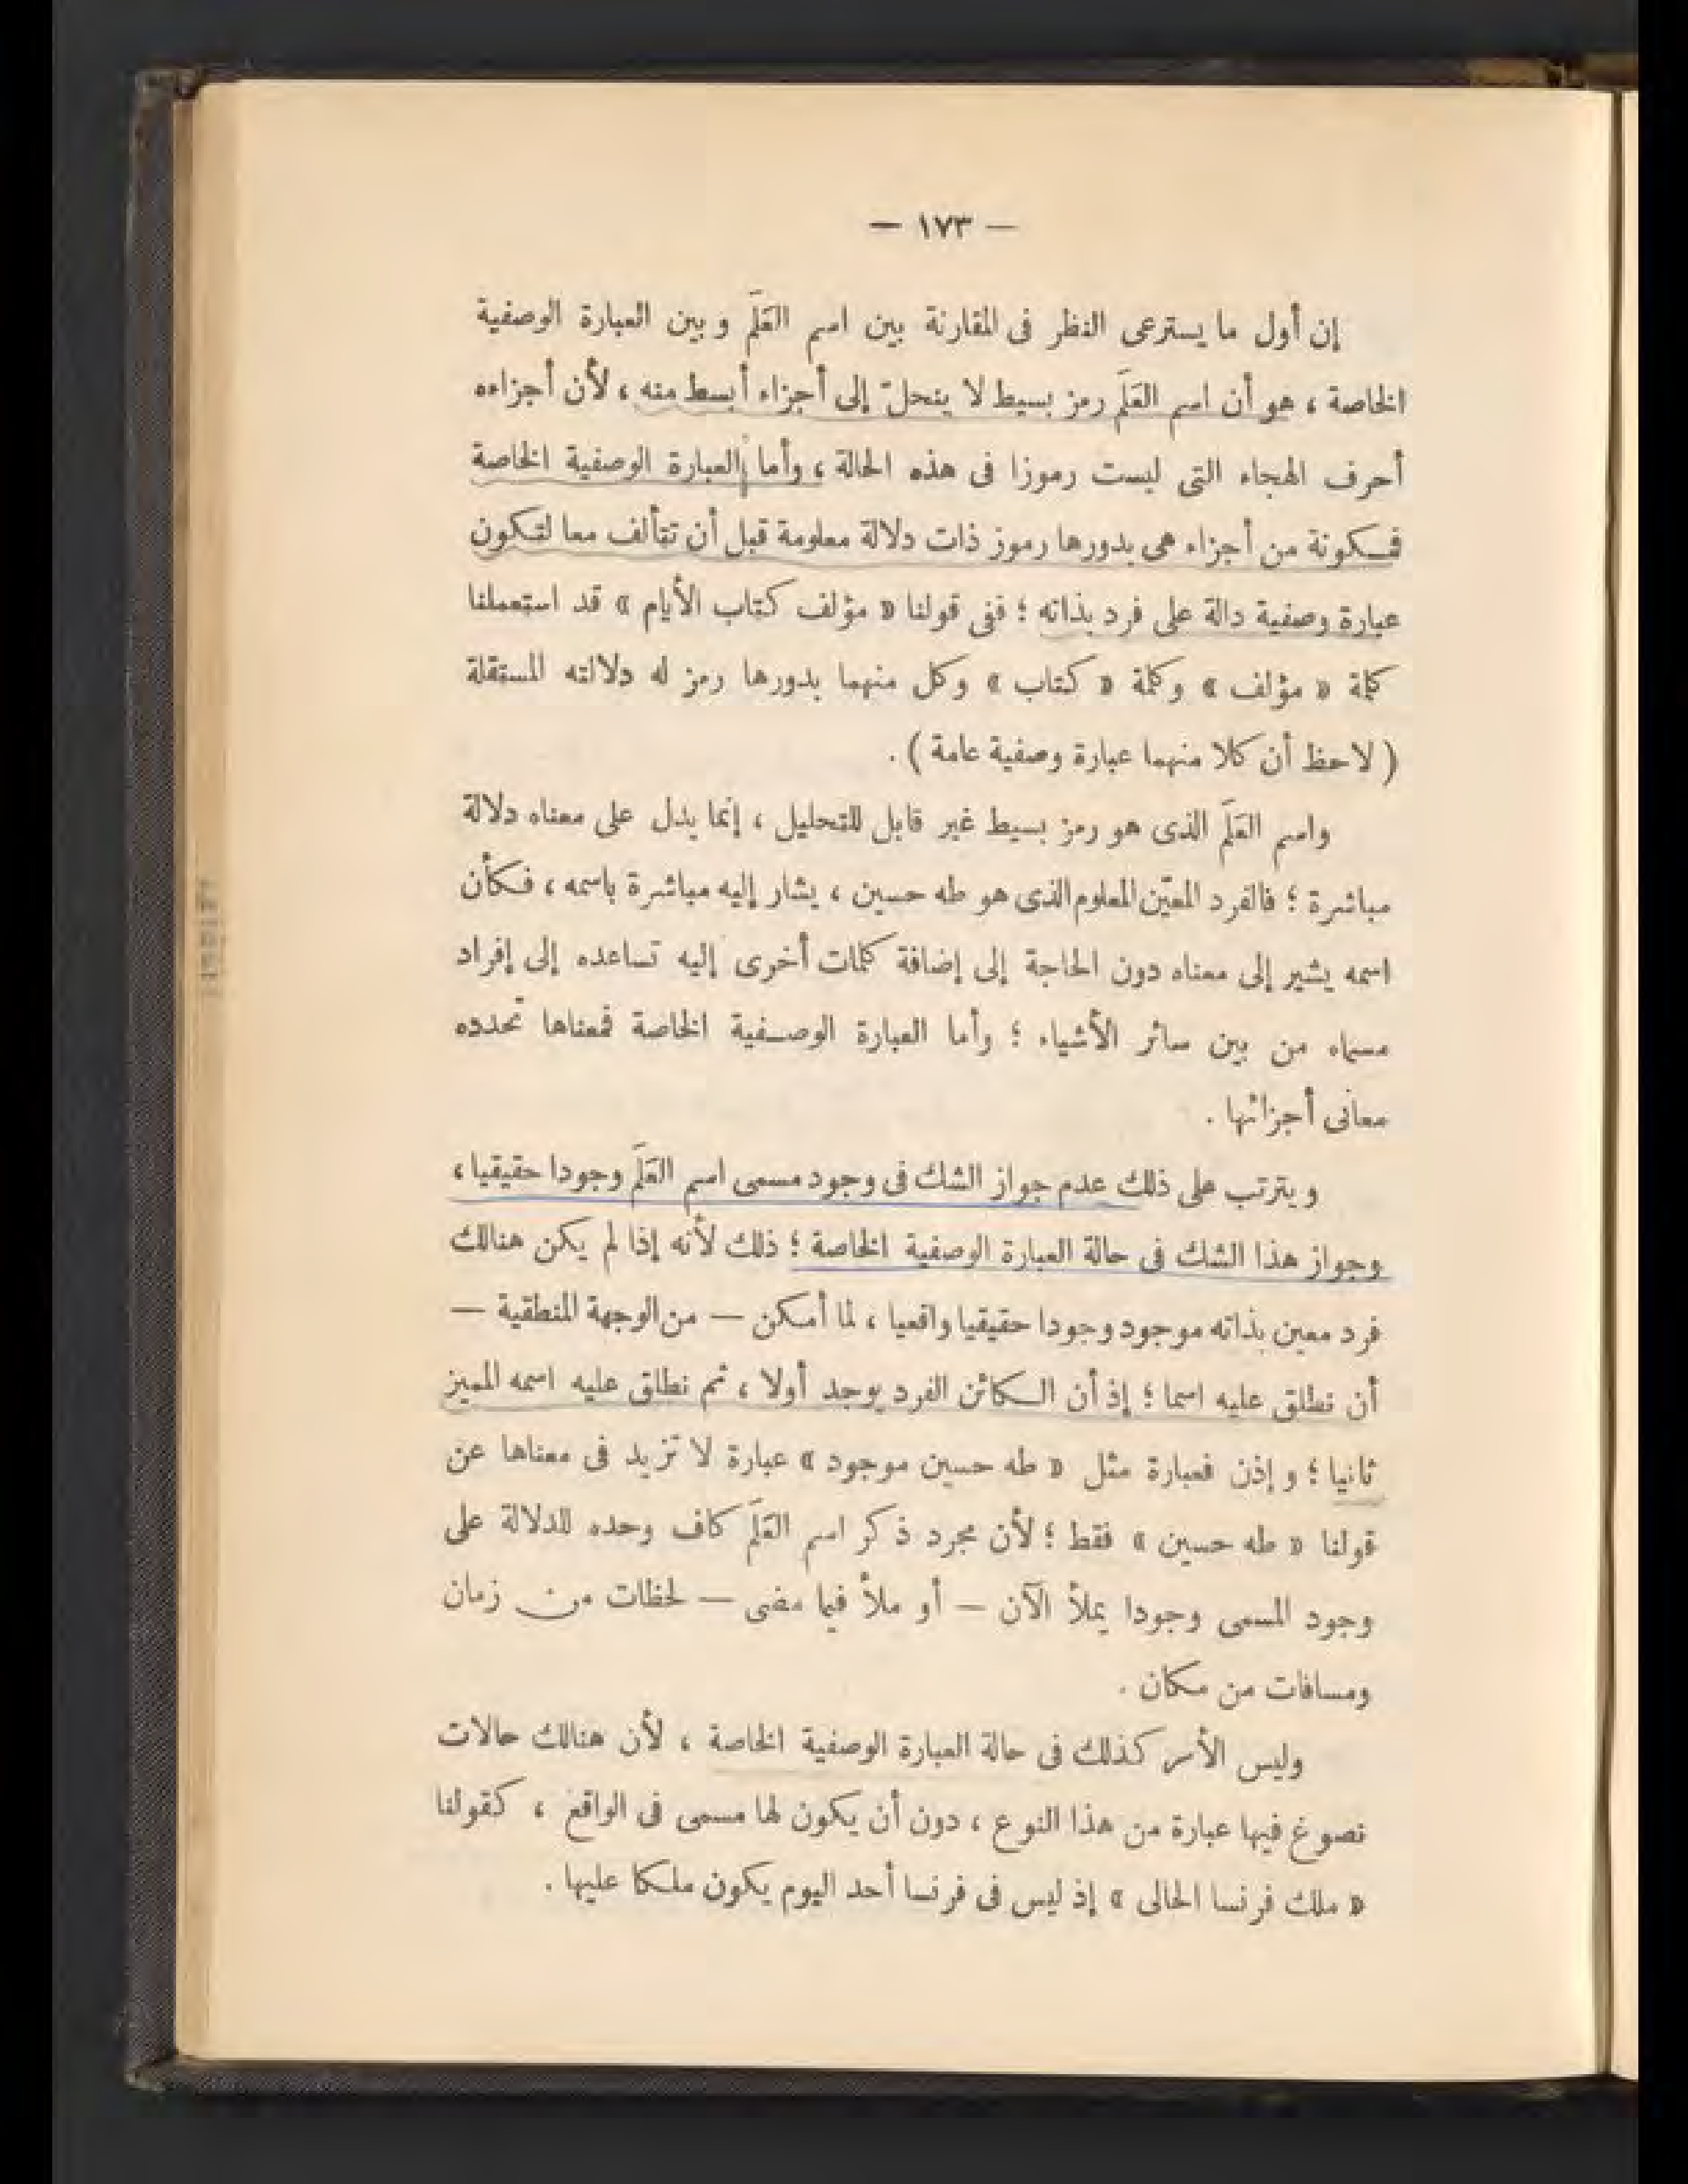 — ١٧٣ —
إن أول ما يسترعى النظر فى المقارنة بين اسم العَلَم وبين العبارة الوصفية
الخاصة ، هو أن اسم العَلَم رمز بسيط لا ينحلّ إلى أجزاء أبسط منه ، لأن أجزاءه
أحرف الهجاء التى ليست رموزا فى هذه الحالة ، وأما العبارة الوصفية الخاصة
فمكونة من أجزاء هى بدورها رموز ذات دلالة معلومة قبل أن تتألف معا لتكون
عبارة وصفية دالة على فرد بذاته ؛ ففى قولنا « مؤلف كتاب الأيام » قد استعملنا
كلمة « مؤلف » وكلمة « كتاب » وكل منهما بدورها رمز له دلالته المستقلة
( لاحظ أن كلا منهما عبارة وصفية عامة ) .
واسم العَلَم الذى هو رمز بسيط غير قابل للتحليل ، إنما يدل على معناه دلالة
مباشرة ؛ فالفرد المعيّن المعلوم الذى هو طه حسين ، يشار إليه مباشرة باسمه ، فكأن
اسمه يشير إلى معناه دون الحاجة إلى إضافة كلمات أخرى إليه تساعده إلى إفراد
مسماه من بين سائر الأشياء ؛ وأما العبارة الوصفية الخاصة فمعناها تحدده
معانى أجزائها .
ويترتب على ذلك عدم جواز الشك فى وجود مسمى اسم العَلَم وجودا حقيقيا ،
وجواز هذا الشك فى حالة العبارة الوصفية الخاصة ؛ ذلك لأنه إذا لم يكن هنالك
فرد معين بذاته موجود وجودا حقيقيا واقعيا ، لما أمكن — من الوجهة المنطقية —
أن نطلق عليه اسما ؛ إذ أن الكائن الفرد يوجد أولا ، ثم نطلق عليه اسمه المميز
ثانيا ؛ وإذن فعبارة مثل « طه حسين موجود » عبارة لا تزيد فى معناها عن
قولنا « طه حسين » فقط ؛ لأن مجرد ذكر اسم العَلَم كاف وحده للدلالة على
وجود المسمى وجودا يملأ الآن — أو ملأ فيما مضى — لحظات من زمان
ومسافات من مكان .
وليس الأمر كذلك فى حالة العبارة الوصفية الخاصة ، لأن هنالك حالات
نصوغ فيها عبارة من هذا النوع ، دون أن يكون لها مسمى فى الواقع ، كقولنا
« ملك فرنسا الحالى » إذ ليس فى فرنسا أحد اليوم يكون ملكا عليها .